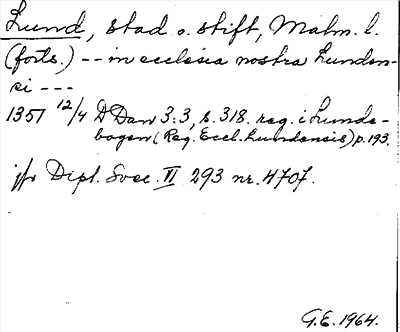 Lund, stad o. stift, Malm. l.
(forts.) -- in ecclesia nostra Lunden-
si ---
1351 12/4 D Dan 3:3, s. 318. reg. i Lunda-
bogen (Reg. Eccl. Lundensis) p. 193.
jfr Dipl. Svec. VI 293 nr. 4707.
G.E. 1964.